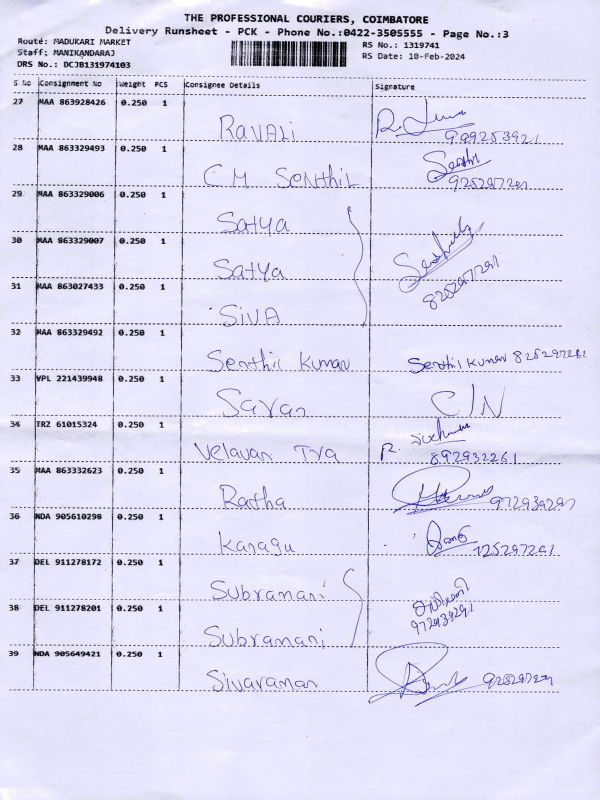 THE PROFESSIONAL COURIERS, COIMBATORE
Delivery Runsheet - PCK - Phone No.:0422-3505555 - Page No.:3
Route: MADUKARI MARKET
Staff: MANIKANDARAJ
DRS No.: DCJB131974103
RS No.: 1319741
RS Date: 10-Feb-2024
S No Consignment No Weight PCS Consignee Details Signature
27 MAA 863928426 0.250 1 RAVALI
28 MAA 863329493 0.250 1 CM SENTHIL Senthil
29 MAA 863329006 0.250 1 Satya
30 MAA 863329007 0.250 1 Satya
31 MAA 863027433 0.250 1 SIVA
32 MAA 863329492 0.250 1 Senthil Kumar Senthil Kumar
33 VPL 221439948 0.250 1 Saran C/N
34 TRZ 61015324 0.250 1 Velavan Tra 892932261
35 MAA 863332623 0.250 1 Rartha
36 NDA 905610298 0.250 1 Kanagu
37 DEL 911278172 0.250 1 Subramani
38 DEL 911278201 0.250 1 Subramani
39 NDA 905649421 0.250 1 Sivaraman